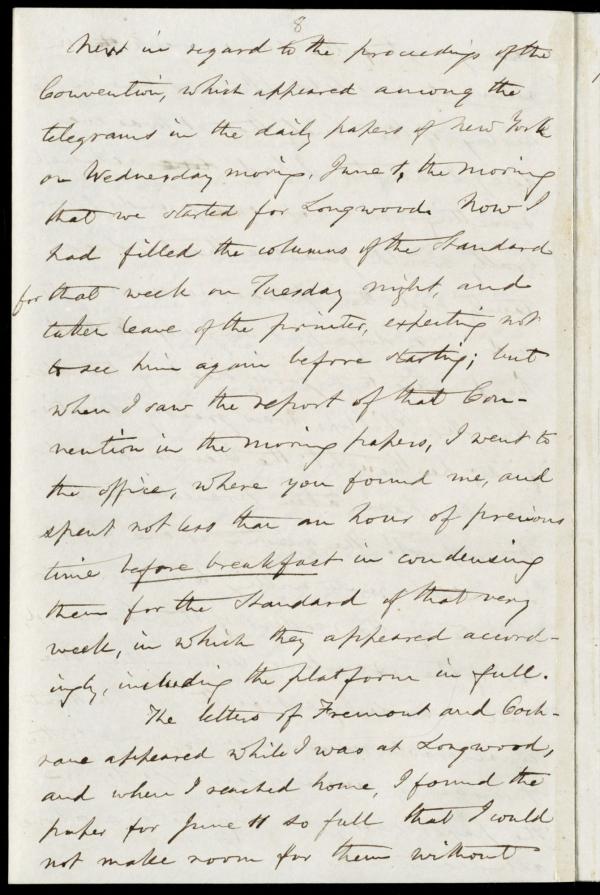 8
Next in regard to the proceedings of the
Convention, which appeared among the
telegrams in the daily papers of New York
on Wednesday morning, June 1, the morning
that we started for Longwood. Now I
had filled the columns of the Standard
for that week on Tuesday night, and
taken leave of the printer, expecting not
to see him again before starting; but
when I saw the report of that Con-
vention in the morning papers, I went to
the office, where you found me, and
spent not less than an hour of precious
time before breakfast in condensing
them for the Standard of that very
week, in which they appeared accord-
ingly, including the platform in full.
The letters of Fremont and Coch-
rane appeared while I was at Longwood,
and when I reached home, I found the
paper for June 11 so full that I could
not make room for them without